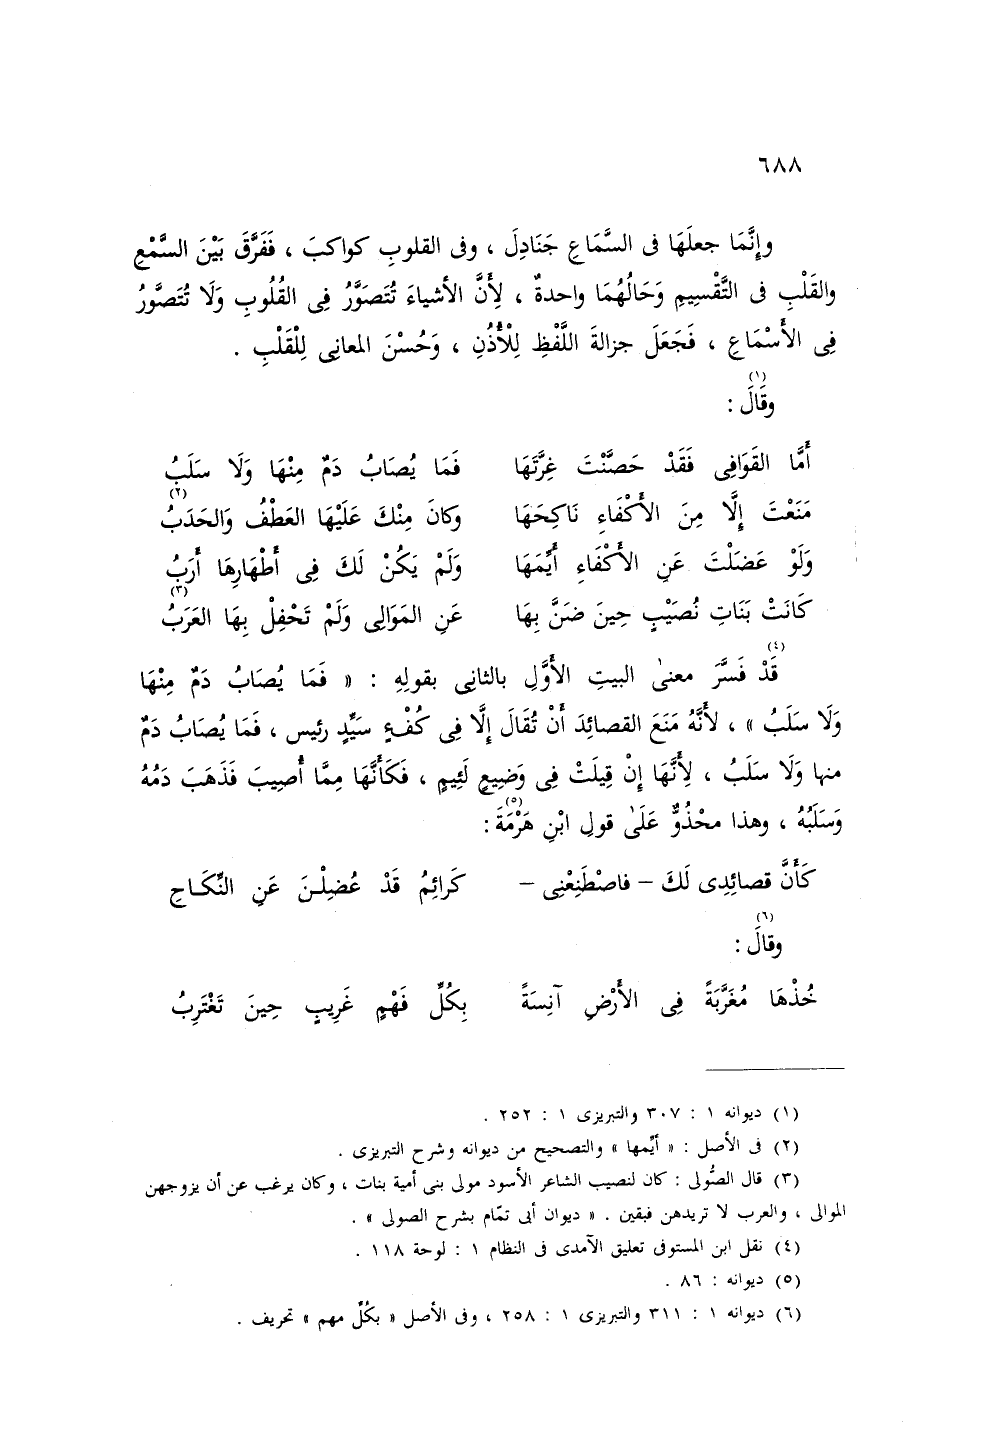 ٦٨٨
وإِنَّمَا جعلَهَا فى السَّمَاعِ جَنَادِلَ ، وفى القلوبِ كواكبَ ، فَفَرَّقَ بَيْنَ السَّمْعِ
والقَلْبِ فى التَّقْسِيمِ وَحَالُهُمَا واحدةٌ ، لِأَنَّ الأشياءَ تُتَصَوَّرُ فِى القُلُوبِ وَلَا تُتَصَوَّرُ
فِى الأَسْمَاعِ ، فَجَعَلَ جزالةَ اللَّفظِ لِلْأُذُنِ ، وَحُسْنَ المعانِى لِلْقَلْبِ .
وقَالَ(١) :
أَمَّا القَوَافِى فَقَدْ حَصَّنْتَ غِرَّتَهَا فَمَا يُصَابُ دَمٌ مِنْهَا وَلَا سَلَبُ
مَنَعْتَ إِلَّا مِنَ الأَكْفَاءِ نَاكِحَهَا وكانَ مِنْكَ عَلَيْهَا العَطْفُ وَالحَدَبُ(٢)
وَلَوْ عَضَلْتَ عَنِ الأَكْفَاءِ أَيِّمَهَا وَلَمْ يَكُنْ لَكَ فِى أَطْهَارِهَا أَرَبُ
كَانَتْ بَنَاتِ نُصَيْبٍ حِينَ ضَنَّ بِهَا عَنِ المَوَالِى وَلَمْ تَحْفِلْ بِهَا العَرَبُ(٣)
قَدْ(٤) فَسَّرَ معنىٰ البيتِ الأَوَّلِ بالثانِى بقولِهِ : « فَمَا يُصَابُ دَمٌ مِنْهَا
وَلَا سَلَبُ » ، لأَنَّهُ مَنَعَ القصائدَ أَنْ تُقَالَ إِلَّا فِى كُفْءٍ سَيِّدٍ رئيس ، فَمَا يُصَابُ دَمٌ
منها وَلَا سَلَبُ ، لِأَنَّهَا إِنْ قِيلَتْ فِى وَضِيعٍ لَئِيمٍ ، فَكَأَنَّهَا مِمَّا أُصِيبَ فَذَهَبَ دَمُهُ
وَسَلَبُهُ ، وهذا محْذُوٌّ عَلَىٰ قولِ ابْنِ هَرْمَةَ(٥) :
كَأَنَّ قصائِدِى لَكَ – فاصْطَنِعْنِى – كَرائِمُ قَدْ عُضِلْنَ عَنِ النِّكَاحِ
وقالَ(٦) :
خُذْهَا مُغَرَّبَةً فِى الأَرْضِ آنِسَةً بِكُلِّ فَهْمٍ غَرِيبٍ حِينَ تَغْتَرِبُ
(١) ديوانه ١ : ٣٠٧ والتبريزى ١ : ٢٥٢ .
(٢) فى الأصل : « أيِّمها » والتصحيح من ديوانه وشرح التبريزى .
(٣) قال الصُّولى : كان لنصيب الشاعر الأسود مولى بنى أمية بنات ، وكان يرغب عن أن يزوجهن
الموالى ، والعرب لا تريدهن فبقين . « ديوان أبى تمّام بشرح الصولى » .
(٤) نقل ابن المستوفى تعليق الآمدى فى النظام ١ : لوحة ١١٨ .
(٥) ديوانه : ٨٦ .
(٦) ديوانه ١ : ٣١١ والتبريزى ١ : ٢٥٨ ، وفى الأصل « بكُلِّ مهم » تحريف .